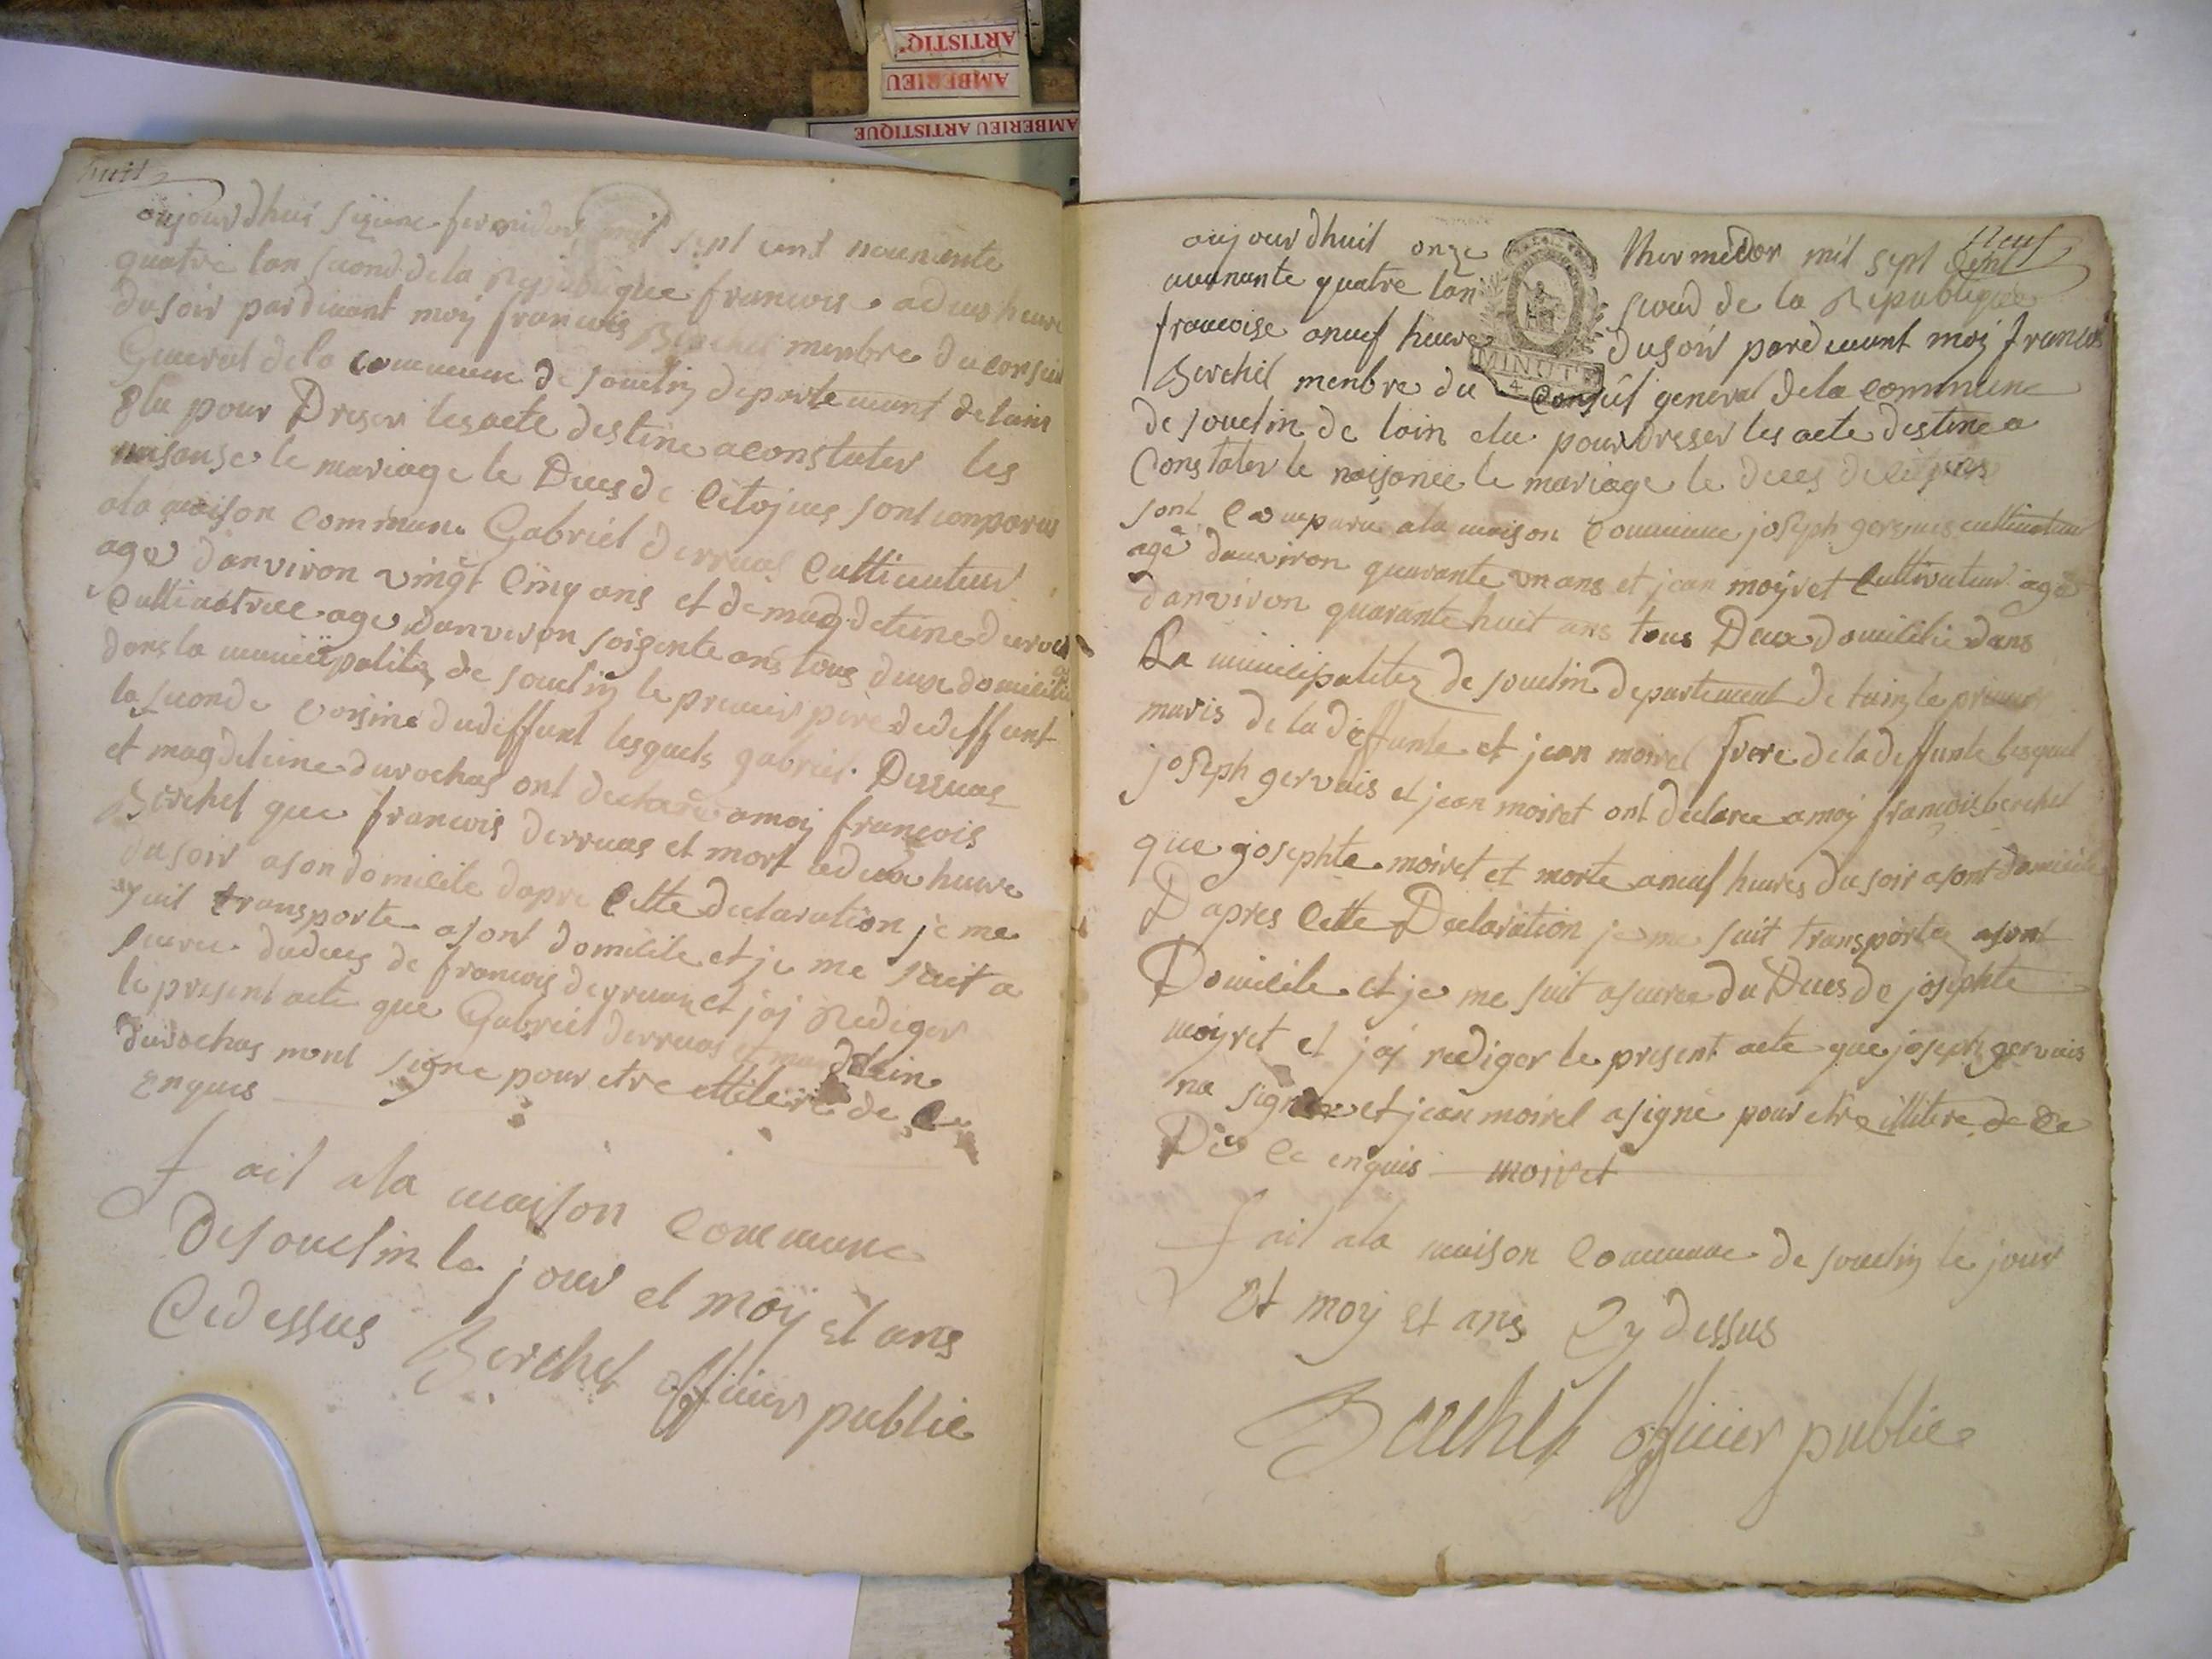 ARTISTIQ
AMBERIEU
AMBERIEU ARTISTIQUE
huit
aujourdhui sizieme mil sept cent nounante
quatre lan second de la Republique francoise a deux heure
du soir pardevant moij francois Berchet menbre du conseil
General de la commune de souclin departement de lain
Elu pour Dreser les acte destine a constater les
naisanse le mariage le Deces de Citojens sont conparus
a la maison Commune Gabriel derruas Cultivateur
age danviron vingt Cinq ans et de magdeleine durochas
Cultivatrice age danviron soisente ans tous deux domicilie
dans la municipalitez de souclin le premier pere de deffunt
la seconde voisine du deffunt lesquels gabriel Derruas
et magdeleine durochas ont declare a moij francois
Berchet que francois derruas et mort a deux heure
du soir a son domicile dapre Cette declaration je me
suit transporte a sont domicile et je me suit a
surre du deces de francois derruas et jaj Rediger
le present acte que Gabriel derruas et magdelein
durochas nont signe pour etre ellitere de Ce
Enquis
fait a la maison Commune
de souclin le jour et moij et ans
Cidessus Berchet officier public
Neuf
aujourdhuit onze thermidor mil sept Cent
nounante quatre lan second de la Republique
francoise a neuf heure du soir pardevant moij francois
MINUTE
4
Berchet menbre du Conseil general de la commune
de souclin de lain elu pour dresser les acte destine a
Constater le naisance le mariage le deces de Citojens
sont Comparu a la maison Commune joseph gervais cultivateur
agé danviron quarante un ans et jean moijret Cultivateur age
danviron quarante huit ans tous Deux domicilie dans
La municipalitez de souclin departement de lain le premier
maris de la deffunte et jean moiret frere de la deffunte lesquel
joseph gervais et jean moiret ont declaree a moy francois berchet
que josephte moiret et morte a neuf heures du soir a sont domicile
Dapres Cette Declaration je me suit transportez a sont
Domicile et je me suit asurree du Deces de josephte
moijret et jaj rediger le present acte que joseph gervais
na signer et jean moiret a signé pour etre illitere de Ce
De Ce enquis moiret
fait a la maison Commune de souclin le jour
Et moy et ans Cy dessus
Berchet officier public